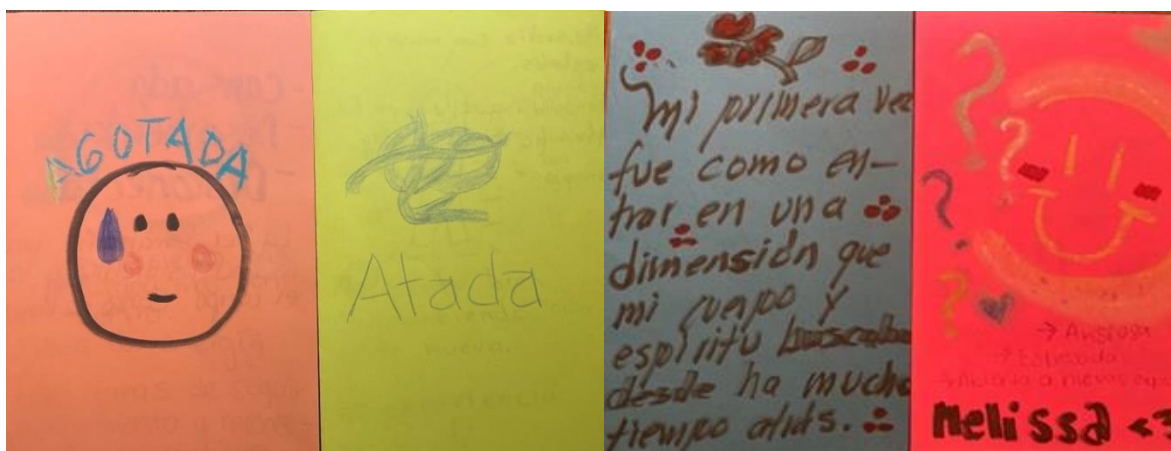 AGOTADA
Atada
Mi primera vez
fue como en-
trar en una
dimensión que
mi cuerpo y
espíritu buscaba
desde ha mucho
tiempo atrás.
→ Ansiosa
→ Estresada
→ Abierta a nuevas
Melissa <3